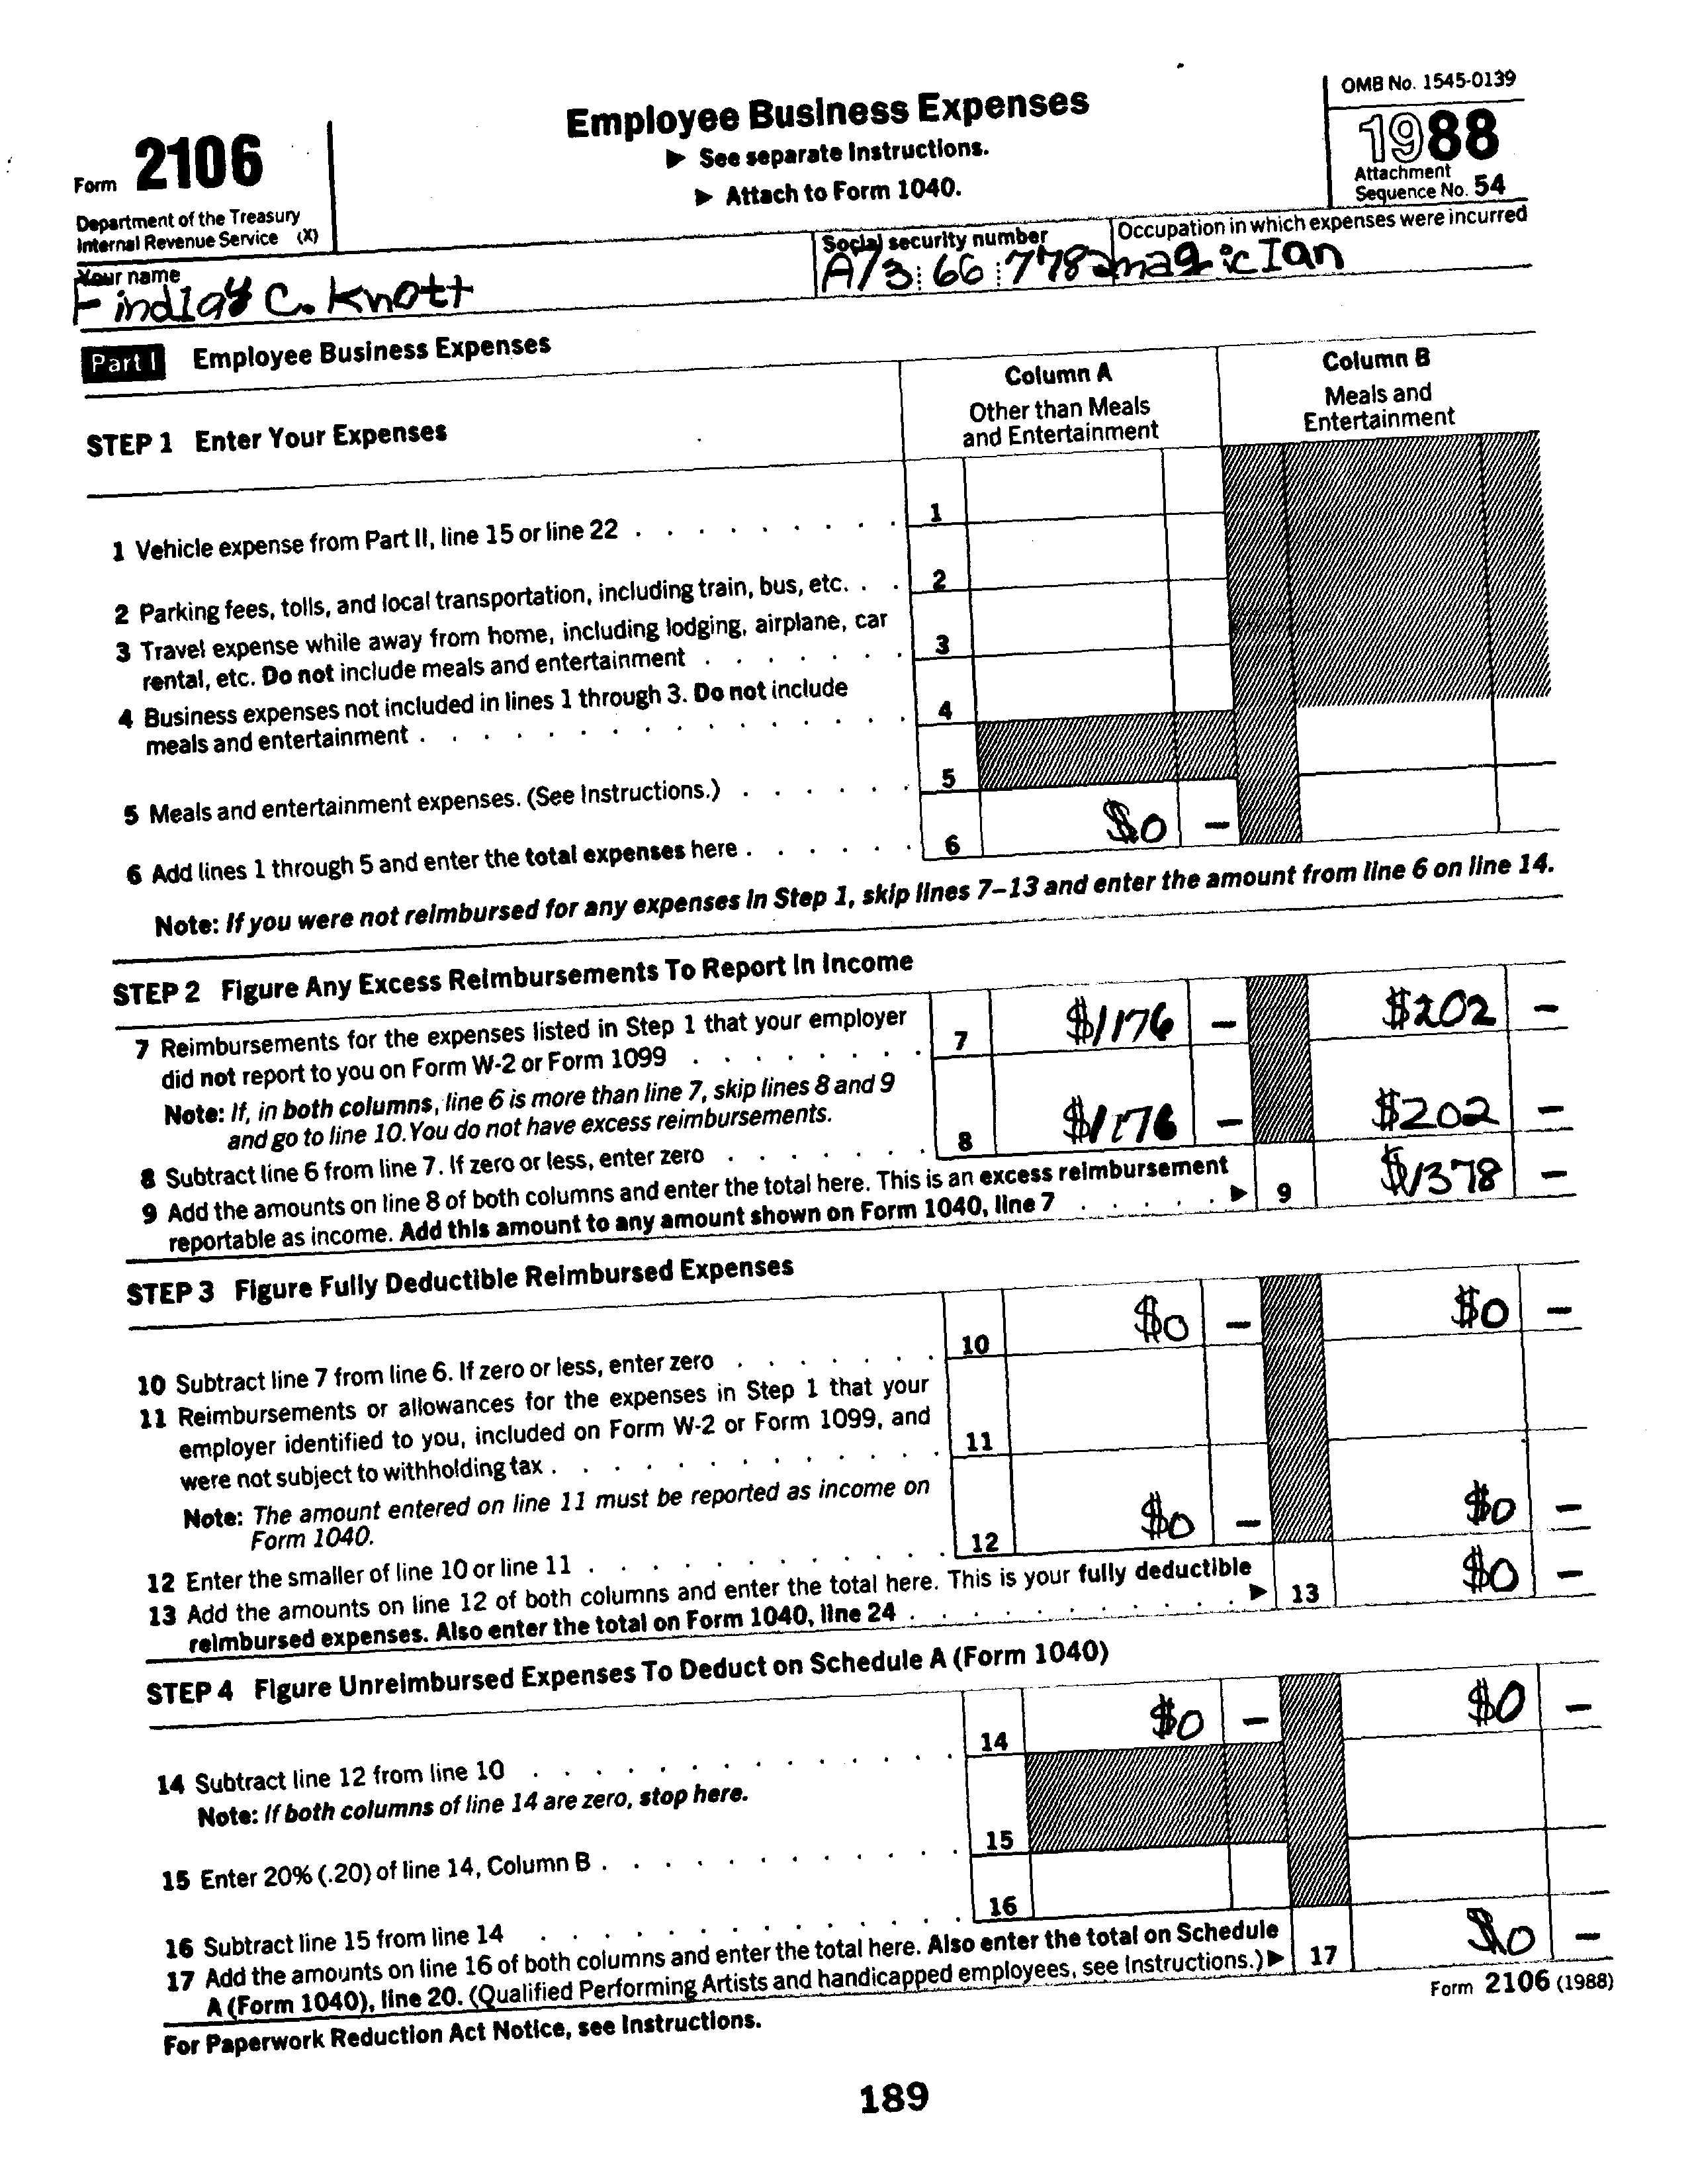 Form 2106
Department of the Treasury
Internal Revenue Service (X)
Employee Business Expenses
▶ See separate Instructions.
▶ Attach to Form 1040.
OMB No. 1545-0139
1988
Attachment
Sequence No. 54
Your name
Findlay C. Knott
Social security number
A73 66 7782
Occupation in which expenses were incurred
magicIan
Part I Employee Business Expenses
STEP 1 Enter Your Expenses
Column A
Other than Meals
and Entertainment
Column B
Meals and
Entertainment
1 Vehicle expense from Part II, line 15 or line 22 . . . . . . . . . 1
2 Parking fees, tolls, and local transportation, including train, bus, etc. . . 2
3 Travel expense while away from home, including lodging, airplane, car
rental, etc. Do not include meals and entertainment . . . . . . . 3
4 Business expenses not included in lines 1 through 3. Do not include
meals and entertainment . . . . . . . . . . . . . . . . 4
5 Meals and entertainment expenses. (See Instructions.) . . . . . . 5
6 Add lines 1 through 5 and enter the total expenses here . . . . . . 6 $0 –
Note: If you were not reimbursed for any expenses in Step 1, skip lines 7–13 and enter the amount from line 6 on line 14.
STEP 2 Figure Any Excess Reimbursements To Report In Income
7 Reimbursements for the expenses listed in Step 1 that your employer
did not report to you on Form W-2 or Form 1099 . . . . . . . . 7 $1176 – $202 –
Note: If, in both columns, line 6 is more than line 7, skip lines 8 and 9
and go to line 10. You do not have excess reimbursements.
8 Subtract line 6 from line 7. If zero or less, enter zero . . . . . . . 8 $1176 – $202 –
9 Add the amounts on line 8 of both columns and enter the total here. This is an excess reimbursement
reportable as income. Add this amount to any amount shown on Form 1040, line 7 . . . . . ▶ 9 $1378 –
STEP 3 Figure Fully Deductible Reimbursed Expenses
10 Subtract line 7 from line 6. If zero or less, enter zero . . . . . . . 10 $0 – $0 –
11 Reimbursements or allowances for the expenses in Step 1 that your
employer identified to you, included on Form W-2 or Form 1099, and
were not subject to withholding tax . . . . . . . . . . . . . 11
Note: The amount entered on line 11 must be reported as income on
Form 1040.
12 Enter the smaller of line 10 or line 11 . . . . . . . . . . . . 12 $0 – $0 –
13 Add the amounts on line 12 of both columns and enter the total here. This is your fully deductible
reimbursed expenses. Also enter the total on Form 1040, line 24 . . . . . . . . . . . ▶ 13 $0 –
STEP 4 Figure Unreimbursed Expenses To Deduct on Schedule A (Form 1040)
14 Subtract line 12 from line 10 . . . . . . . . . . . . . . 14 $0 – $0 –
Note: If both columns of line 14 are zero, stop here.
15 Enter 20% (.20) of line 14, Column B . . . . . . . . . . . . 15
16 Subtract line 15 from line 14 . . . . . . . . . . . . . . 16
17 Add the amounts on line 16 of both columns and enter the total here. Also enter the total on Schedule
A (Form 1040), line 20. (Qualified Performing Artists and handicapped employees, see Instructions.) ▶ 17 $0 –
For Paperwork Reduction Act Notice, see Instructions.
Form 2106 (1988)
189